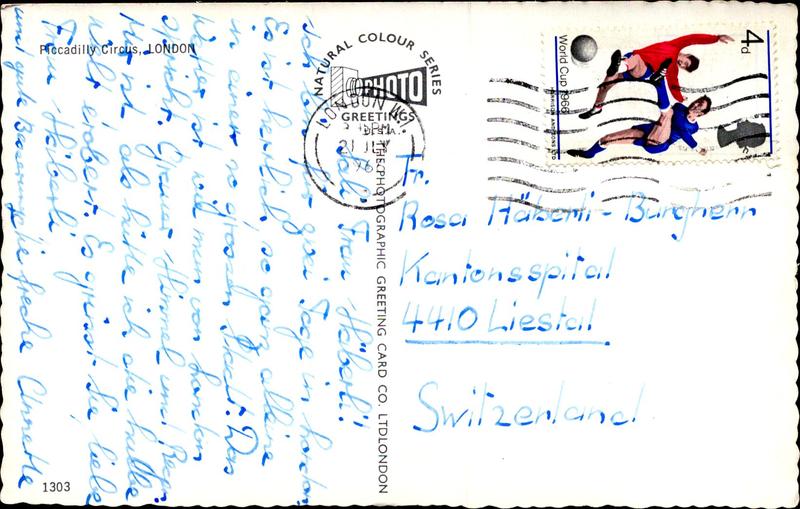 Piccadilly Circus, LONDON
NATURAL COLOUR SERIES
PHOTO
GREETINGS
THE PHOTOGRAPHIC GREETING CARD CO. LTD LONDON
1303
LONDON W
PM
21 JLY
4d
World Cup 1966
HARRISON AND SONS LTD
Fr.
Rosa Häberli-Burgherr
Kantonsspital
4410 Liestal
Switzerland
Sali Frau Häberli!
Ich bin für zwei Tage in London
Es ist herrlich, so ganz alleine
in einer so grossen Stadt. Das
Wetter ist wie man von London
spricht. Grauer Himmel und Regen
Mir ist als hätte ich die halbe
Welt erobert. Es grüsst Sie, liebe
Frau Häberli
und gute Besserung die freche Annette